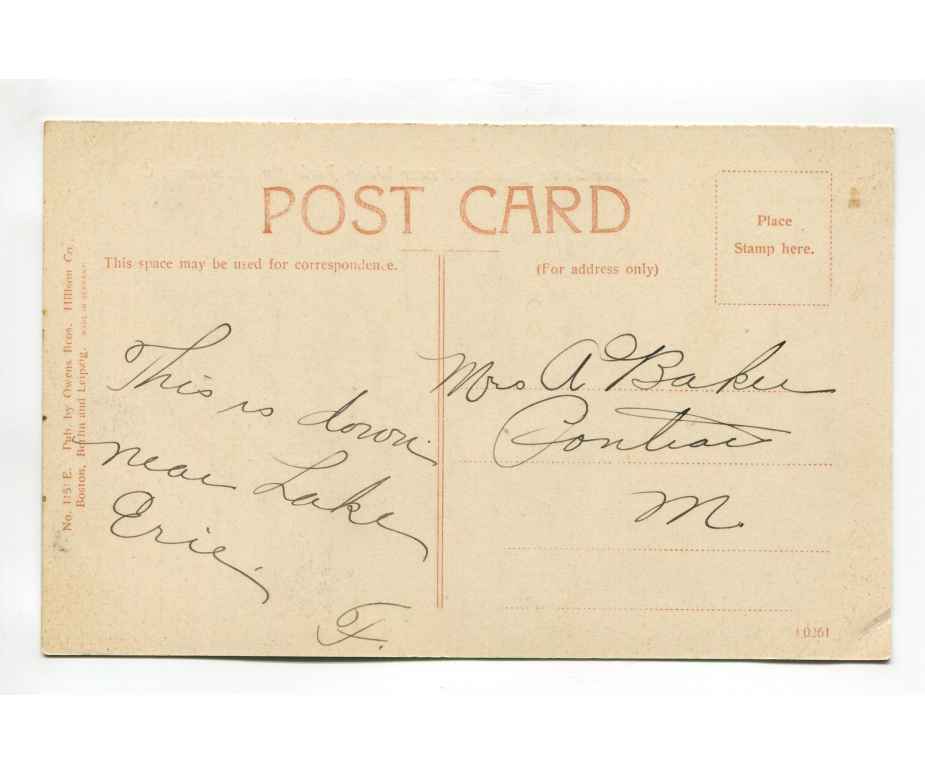 POST CARD
Place
Stamp here.
This space may be used for correspondence.
(For address only)
This is down
near Lake
Erie.
F.
Mrs A Baker
Pontiac
M.
No. 1151 E. Pub. by Owens Bros. Hillson Co.,
Boston, Berlin and Leipzig. MADE IN GERMANY